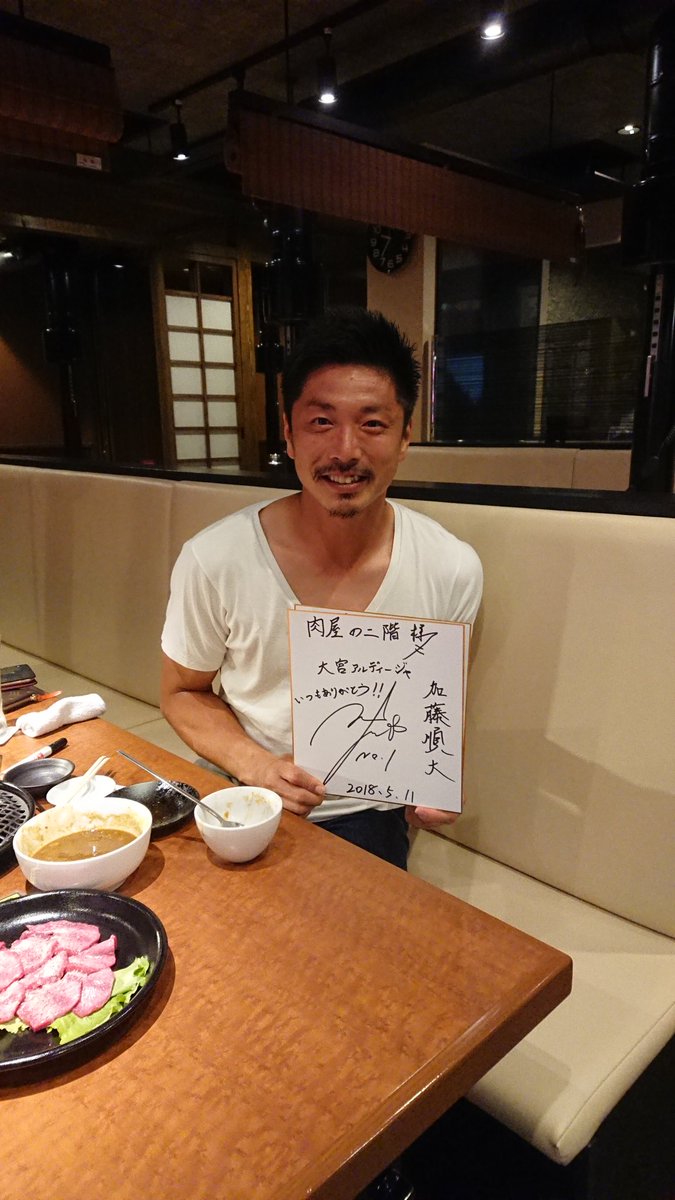 肉屋の二階 様
大宮アルディージャ
いつもありがとう!!
加藤順大
No.1
2018.5.11